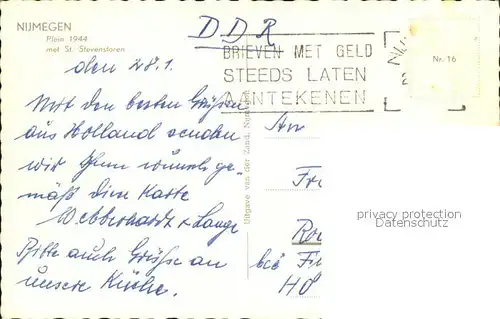 NIJMEGEN
Plein 1944
met St. Stevenstoren
DDR
BRIEVEN MET GELD
STEEDS LATEN
AANTEKENEN
NIJ
Nr. 16
den 28.1.
Mit den besten Grüßen
aus Holland senden
wir Ihnen wunschge-
mäß diese Karte
W. Ebberhardt & Lange
Bitte auch Grüße an
unsere Küche.
Uitgave van der Zand, Nijmegen
An
Fr
bei
HO
privacy protection
Datenschutz